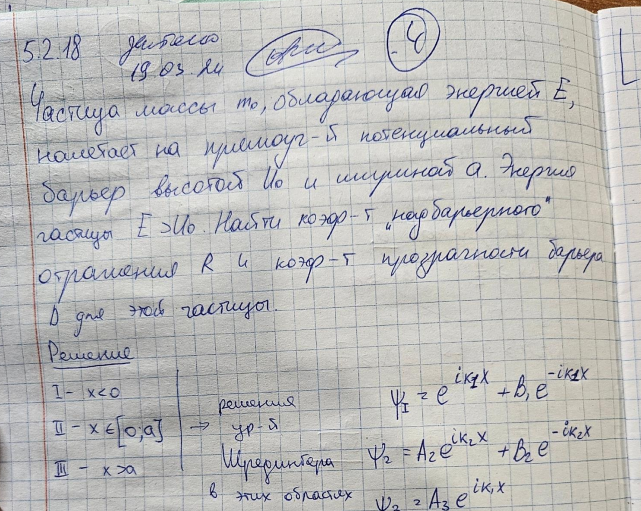 5.2.18
19.03.24
4
Частица массы m₀, обладающая энергией E,
налетает на прямоуг-й потенциальный
барьер высотой U₀ и шириной a. Энергия
частицы E > U₀. Найти коэф-т „надбарьерного"
отражения R и коэф-т прозрачности барьера
D для этой частицы.
Решение
I - x<0
II - x ∈ [0;a]
III - x>a
→ решения
ур-й
Шредингера
в этих областях
ψ_I = e^{ik₁x} + B₁e^{-ik₁x}
ψ₂ = A₂e^{ik₂x} + B₂e^{-ik₂x}
ψ₃ = A₃e^{ik₁x}